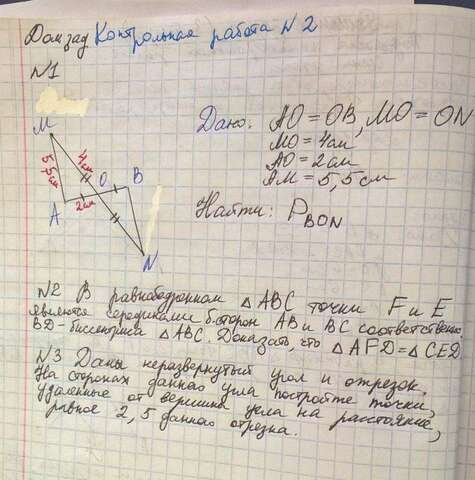 Дом зад Контрольная работа N 2
N1
M
5,5см
4см
O
B
A
2см
N
Дано: AO = OB, MO = ON
MO = 4см
AO = 2см
AM = 5,5 см
Найти: P BON
N2 В равнобедренном △ABC точки F и E
являются серединами б. сторон AB и BC соответственно.
BD - биссектриса △ABC. Доказать, что △AFD = △CED.
N3 Даны неразвернутый угол и отрезок.
На сторонах данного угла постройте точки,
удаленные от вершины угла на расстояние,
равное 2,5 данного отрезка.